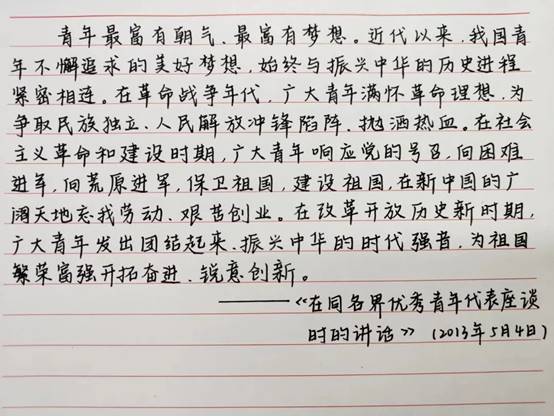 青年最富有朝气、最富有梦想。近代以来,我国青
年不懈追求的美好梦想,始终与振兴中华的历史进程
紧密相连。在革命战争年代,广大青年满怀革命理想,为
争取民族独立、人民解放冲锋陷阵、抛洒热血。在社会
主义革命和建设时期,广大青年响应党的号召,向困难
进军,向荒原进军,保卫祖国,建设祖国,在新中国的广
阔天地忘我劳动、艰苦创业。在改革开放历史新时期,
广大青年发出团结起来、振兴中华的时代强音,为祖国
繁荣富强开拓奋进、锐意创新。
——《在同各界优秀青年代表座谈
时的讲话》(2013年5月4日)